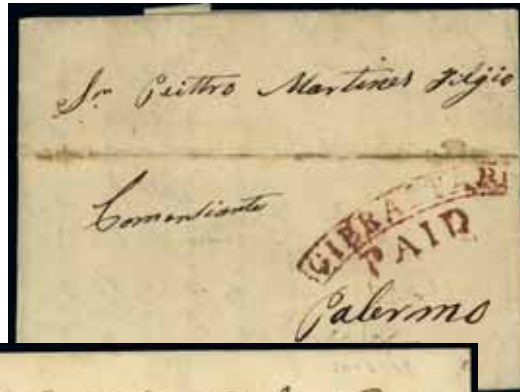 Sor Peittro Martines Filgio
Comerciante
GIBRALTAR
PAID
Palermo